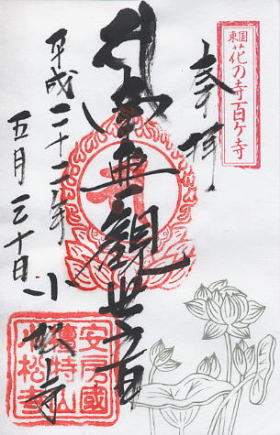 東国
花の寺百ヶ寺
奉拝
觀世音
平成二十二年
五月三十日
小松寺
安房國
檀特山
小松寺